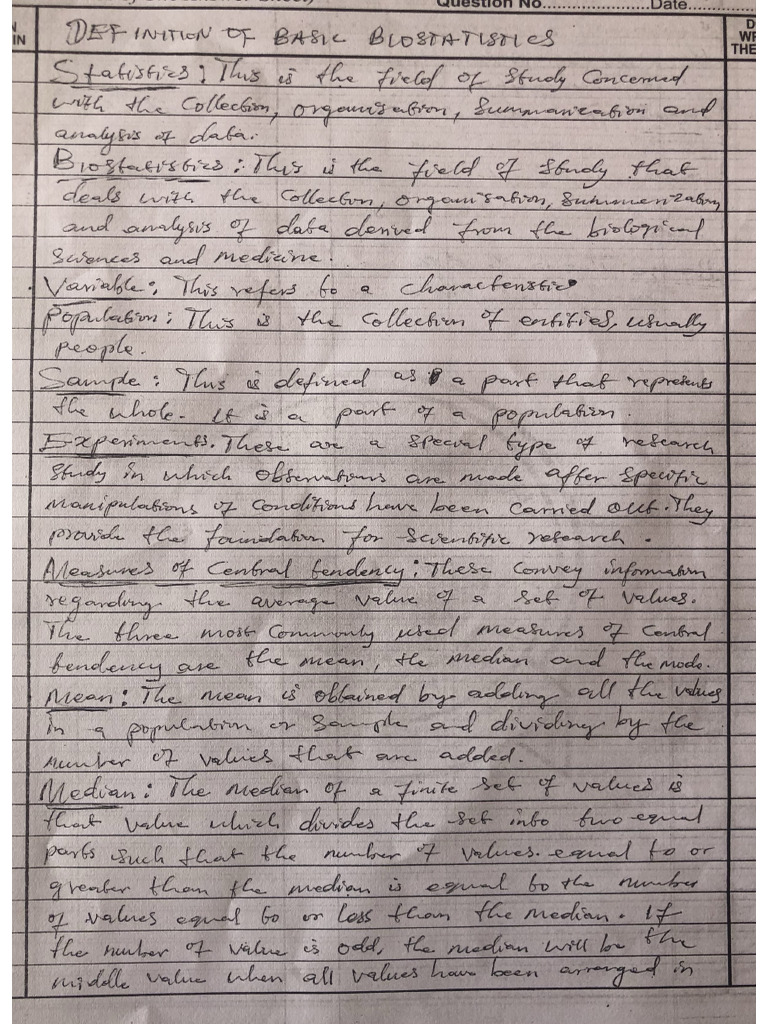 Question No.............Date.........
DEFINITION OF BASIC BIOSTATISTICS
Statistics: This is the field of study concerned
with the collection, organisation, summarization and
analysis of data.
Biostatistics: This is the field of study that
deals with the collection, organisation, summerization,
and analysis of data derived from the biological
sciences and medicine.
Variable: This refers to a characteristic
Population: This is the collection of entities, usually
people.
Sample: This is defined as a part that represents
the whole. It is a part of a population.
Experiments. These are a special type of research
study in which observations are made after specific
manipulations of conditions have been carried out. They
provide the foundation for scientific research.
Measures of Central tendency: These convey information
regarding the average value of a set of values.
The three most commonly used measures of central
tendency are the mean, the median and the mode.
Mean: The mean is obtained by adding all the values
in a population or sample and dividing by the
number of values that are added.
Median: The median of a finite set of values is
that value which divides the set into two equal
parts such that the number of values equal to or
greater than the median is equal to the number
of values equal to or less than the median. If
the number of value is odd, the median will be the
middle value when all values have been arranged in